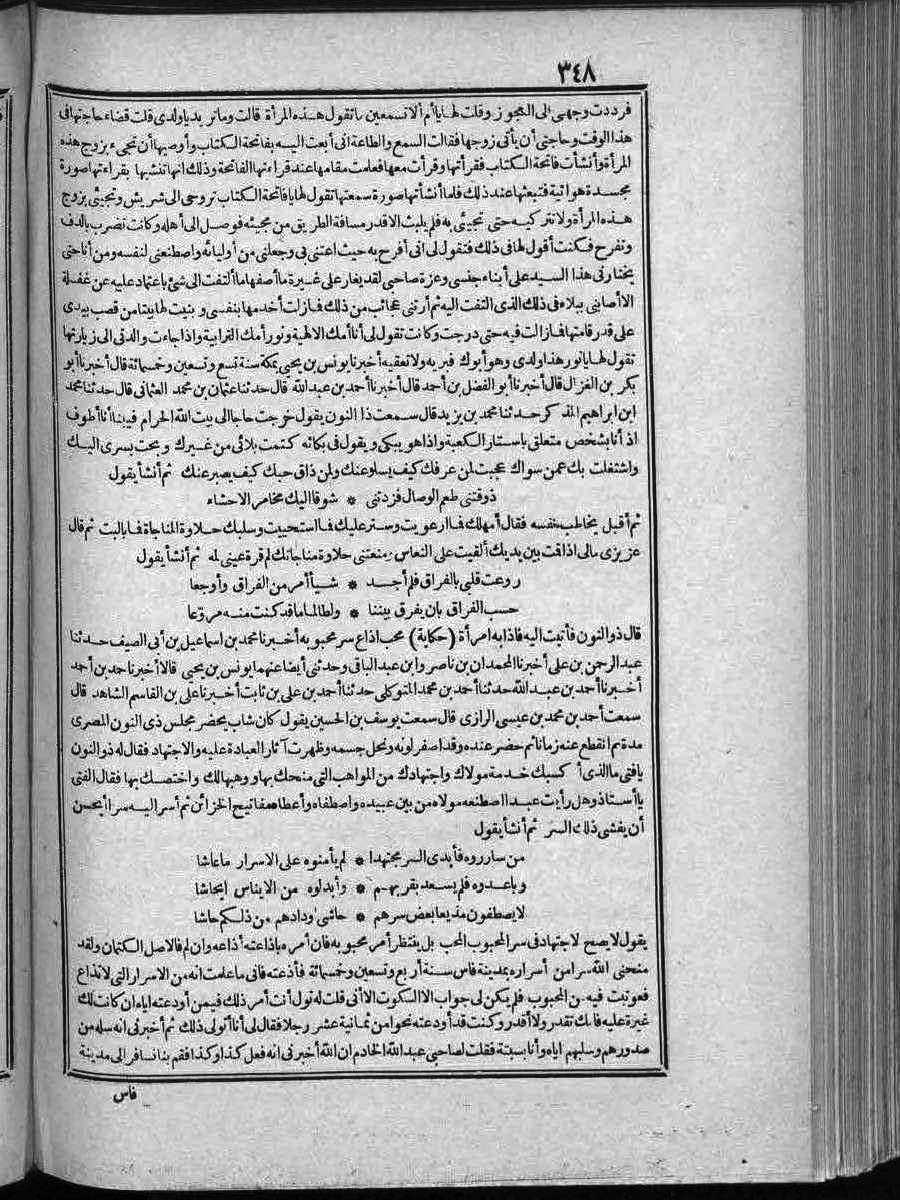 ٣٤٨
فرددت وجهى الى العجوز وقلت لها يا أم ألا تسمعين ما تقول هذه المرأة قالت وما تريد يا ولدى قلت قضاء حاجتها فى
هذا الوقت وحاجتى أن يأتى زوجها فقالت السمع والطاعة انى أبعث اليه بفاتحة الكتاب وأوصيها أن تجىء بزوج هذه
المرأة وأنشأت فاتحة الكتاب فقرأتها وقرأت معها فعلمت مقامها عند قراءتها الفاتحة وذلك انها تنشئها بقراءتها صورة
مجسدة هوائية فتبعثها عند ذلك فلما أنشأتها صورة سمعتها تقول لها يا فاتحة الكتاب تروحى الى شريش وتجيئى بزوج
هذه المرأة ولا تتركيه حتى تجيئى به فلم يلبث الا قدر مسافة الطريق من مجيئه فوصل الى أهله وكانت تضرب بالدف
وتفرح فكنت أقول لها فى ذلك فتقول لى انى أفرح به حيث اعتنى بى وجعلنى من أوليائه واصطنعنى لنفسه ومن أنا حتى
يختارنى هذا السيد على أبناء جنسى وعزة صاحبى لقد يغار على غيرة ما أصفها ما ألتفت الى شئ باعتماد عليه عن غفلة
الا أصابنى ببلاء فى ذلك الذى التفت اليه ثم أرتنى عجائب من ذلك فما زلت أخدمها بنفسى وبنيت لها بيتا من قصب بيدى
على قدر قامتها فما زالت فيه حتى درجت وكانت تقول لى أنا أمك الالهية ونور أمك الترابية واذا جاءت والدتى الى زيارتها
تقول لها يا نور هذا ولدى وهو أبوك فبريه ولا تعقيه أخبرنا يونس بن يحيى بمكة سنة تسع وتسعين وخمسمائة قال أخبرنا أبو
بكر بن الغزال قال أخبرنا أبو الفضل بن أحمد قال أخبرنا أحمد بن عبد الله قال حدثنا عثمان بن محمد العثمانى قال حدثنا محمد
ابن ابراهيم المذكر حدثنا محمد بن يزيد قال سمعت ذا النون يقول خرجت حاجا الى بيت الله الحرام فبينا أنا أطوف
اذ أنا بشخص متعلق باستار الكعبة واذا هو يبكى ويقول فى بكائه كتمت بلائى من غيرك وبحت بسرى اليك
واشتغلت بك عمن سواك عجبت لمن عرفك كيف يسلو عنك ولمن ذاق حبك كيف يصبر عنك ثم أنشأ يقول
ذوقتنى طعم الوصال فزدتنى * شوقا اليك مخامر الاحشاء
ثم أقبل يخاطب نفسه فقال أمهلك فما ارعويت وستر عليك فما استحييت وسلبك حلاوة المناجاة فما باليت ثم قال
عزيزى مالى اذا قمت بين يديك ألقيت على النعاس ومنعتنى حلاوة مناجاتك لم قرة عينى له ثم أنشأ يقول
روعت قلبى بالفراق فلم أجد * شيأ أمر من الفراق وأوجعا
حسب الفراق بان يفرق بيننا * ولطالما ما قد كنت منه مروعا
قال ذو النون فأتيت اليه فاذا به امرأة (حكاية) محب اذاع سر محبوبه أخبرنا محمد بن اسماعيل بن أبى الصيف حدثنا
عبد الرحمن بن على أخبرنا المحمدان بن ناصر وابن عبد الباقى وحدثنى أيضا عنهما يونس بن يحيى قالا أخبرنا حمد بن أحمد
أخبرنا أحمد بن عبد الله حدثنا أحمد بن محمد المتوكلى حدثنا أحمد بن على بن ثابت أخبرنا على بن القاسم الشاهد قال
سمعت أحمد بن محمد بن عيسى الرازى قال سمعت يوسف بن الحسين يقول كان شاب يحضر مجلس ذى النون المصرى
مدة ثم انقطع عنه زمانا ثم حضر عنده وقد اصفر لونه ونحل جسمه وظهرت آثار العبادة عليه والاجتهاد فقال له ذو النون
يا فتى ما الذى أكسبك خدمة مولاك واجتهادك من المواهب التى منحك بها ووهبها لك واختصك بها فقال الفتى
يا أستاذ وهل رأيت عبدا اصطنعه مولاه من بين عبيده واصطفاه وأعطاه مفاتيح الخزائن ثم أسر اليه سرا أيحسن
أن يفشى ذلك السر ثم أنشأ يقول
من سارروه فأبدى السر مجتهدا * لم يأمنوه على الاسرار ما عاشا
وباعدوه فلم يسعد بقربهم * وأبدلوه من الايناس ايحاشا
لا يصطفون مذيعا بعض سرهم * حاشى ودادهم من ذلكم حاشا
يقول لا يصح لاجتهاد فى سر المحبوب المحب بل ينتظر أمر محبوبه فان أمره باذاعته أذاعه وان لم فالاصل الكتمان ولقد
منحنى الله سرا من أسراره بمدينة فاس سنة أربع وتسعين وخمسمائة فأذعته فانى ما علمت انه من الاسرار التى لا تذاع
فعوتبت فيه من المحبوب فلم يكن لى جواب الا السكوت الا أنى قلت له تول أنت أمر ذلك فيمن أودعته اياه ان كانت لك
غيرة عليه فانك تقدر ولا أقدر وكنت قد أودعته نحوا من ثمانية عشر رجلا فقال لى أنا أتولى ذلك ثم أخبرنى انه سله من
صدورهم وسلبهم اياه وأنا بسبتة فقلت لصاحبى عبد الله الخادم ان الله أخبرنى انه فعل كذا وكذا فقم بنا نسافر الى مدينة
فاس